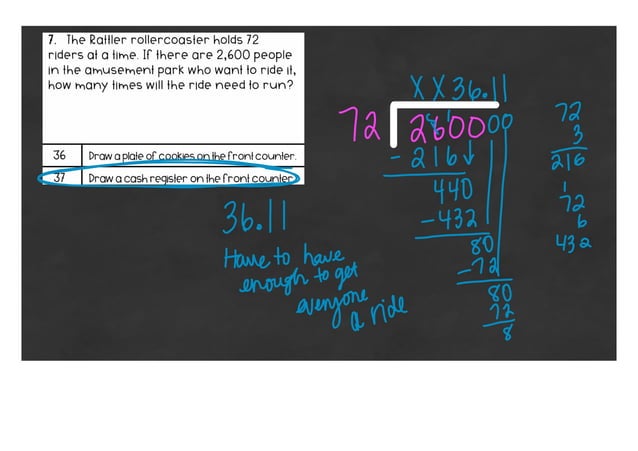 7. The Rattler rollercoaster holds 72
riders at a time. If there are 2,600 people
in the amusement park who want to ride it,
how many times will the ride need to run?
36 Draw a plate of cookies on the front counter.
37 Draw a cash register on the front counter.
36.11
Have to have
enough to get
everyone
a ride
X X 36.11
72 2600 00
- 216
440
- 432
80
- 72
80
72
8
72
3
216
1
72
6
432